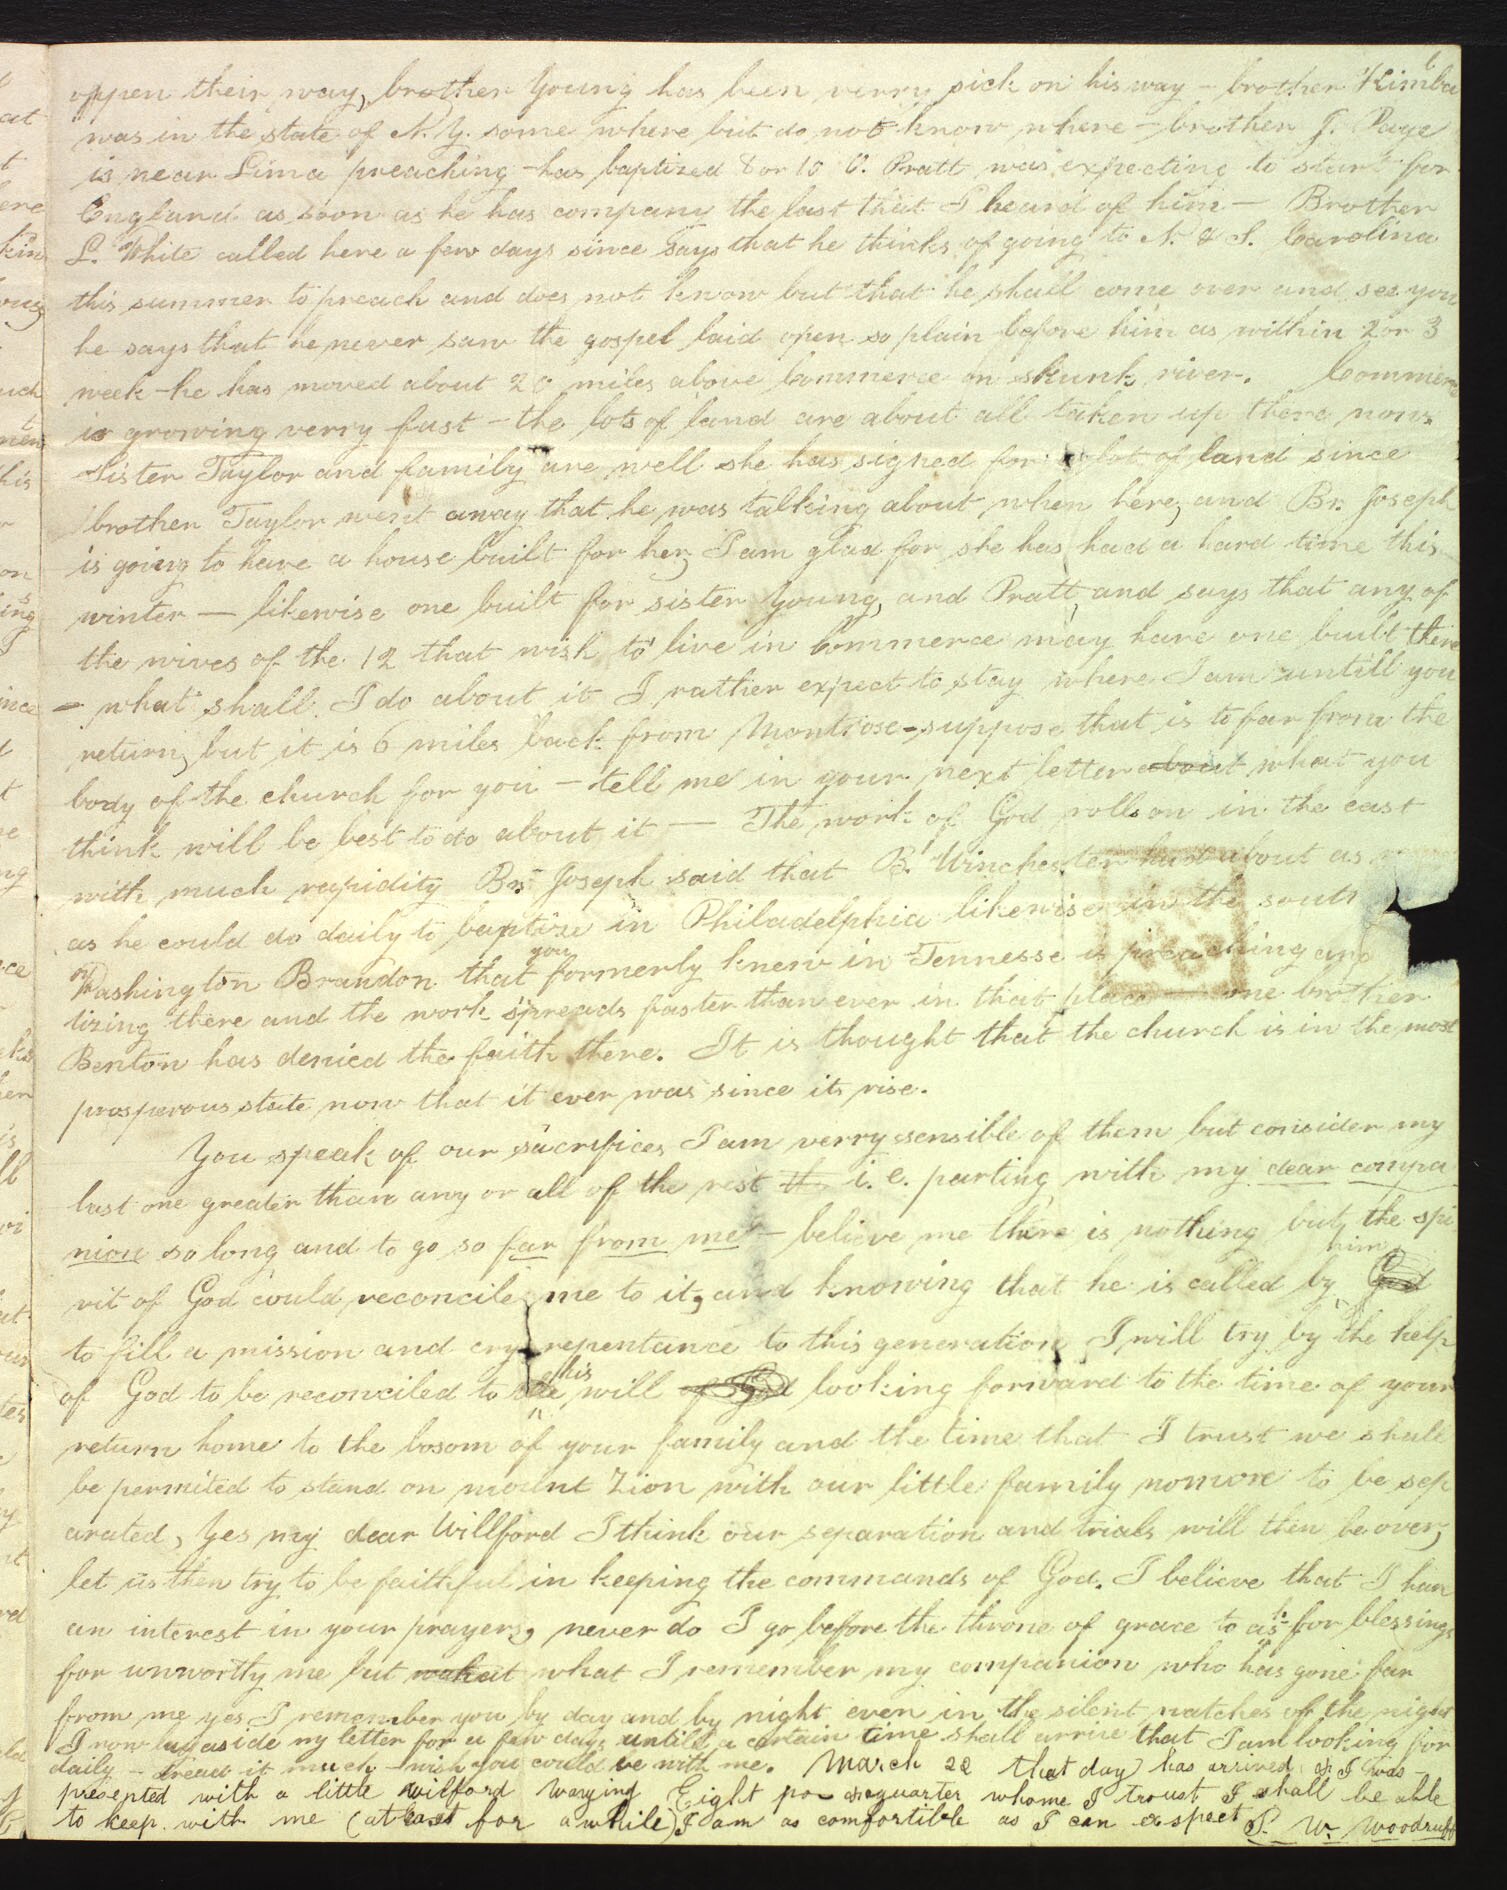 oppen their way, brother Young has been verry sick on his way – brother Kimba
was in the state of N. Y. some where but do not know where – brother J. Page
is near Lima preaching – has baptized 8 or 10 O. Pratt was expecting to start for
England as soon as he has company the last that I heard of him – Brother
L. White called here a few days since says that he thinks of going to N. & S. Carolina
this summer to preach and does not know but that he shall come over and see you
he says that he never saw the gospel laid open so plain before him as within 2 or 3
week – he has moved about 20 miles above Commerce on skunk river. Commerce
is growing verry fast – the lots of land are about all taken up there now.
Sister Taylor and family are well she has signed for a lot of land since
brother Taylor went away that he was talking about when here, and Br. Joseph
is going to have a house built for her, I am glad for she has had a hard time this
winter — likewise one built for sister Young, and Pratt, and says that any of
the wives of the 12 that wish to live in Commerce may have one built there
– what shall I do about it I rather expect to stay where I am untill you
return, but it is 6 miles back from Montrose – suppose that is to far from the
body of the church for you – tell me in your next letter about what you
think will be best to do about it — The work of God rolls on in the east
with much rapidity Br. Joseph said that B. Winchester had about as
as he could do daily to baptize in Philadelphia likewise in the south
Washington Brandon that you formerly knew in Tennesse is preaching and
tizing there and the work spreads faster than ever in that place — one brother
Benton has denied the faith there. It is thought that the church is in the most
prosperous state now that it ever was since its rise.
You speak of our sacrifices I am verry sensible of them but consider my
last one greater than any or all of the rest th i. e. parting with my dear compa
nion so long and to go so far from me – believe me there is nothing but the spi
rit of God could reconcile me to it, and knowing that he is called by him God
to fill a mission and cry repentance to this generation I will try by the help
of God to be reconciled to the his will of God looking forward to the time of your
return home to the bosom of your family and the time that I trust we shall
be permited to stand on mount Zion with our little family nomore to be sep
arated, Yes my dear Willford I think our separation and trials will then be over,
let us then try to be faithful in keeping the commands of God. I believe that I have
an interest in your prayers, never do I go before the throne of grace to ask for blessings
for unworthy me but what I remember my companion who has gone far
from me yes I remember you by day and by night even in the silent watches of the night
I now lay aside my letter for a few days untill a certain time shall arrive that I am looking for
daily – dread it much – wish you could be with me. March 22 that day has arrived & I was –
presented with a little wilford waying Eight po– & quarter whome I troust I shall be able
to keep with me (at least for a while) I am as comfortible as I can exspect P. W. Woodruff